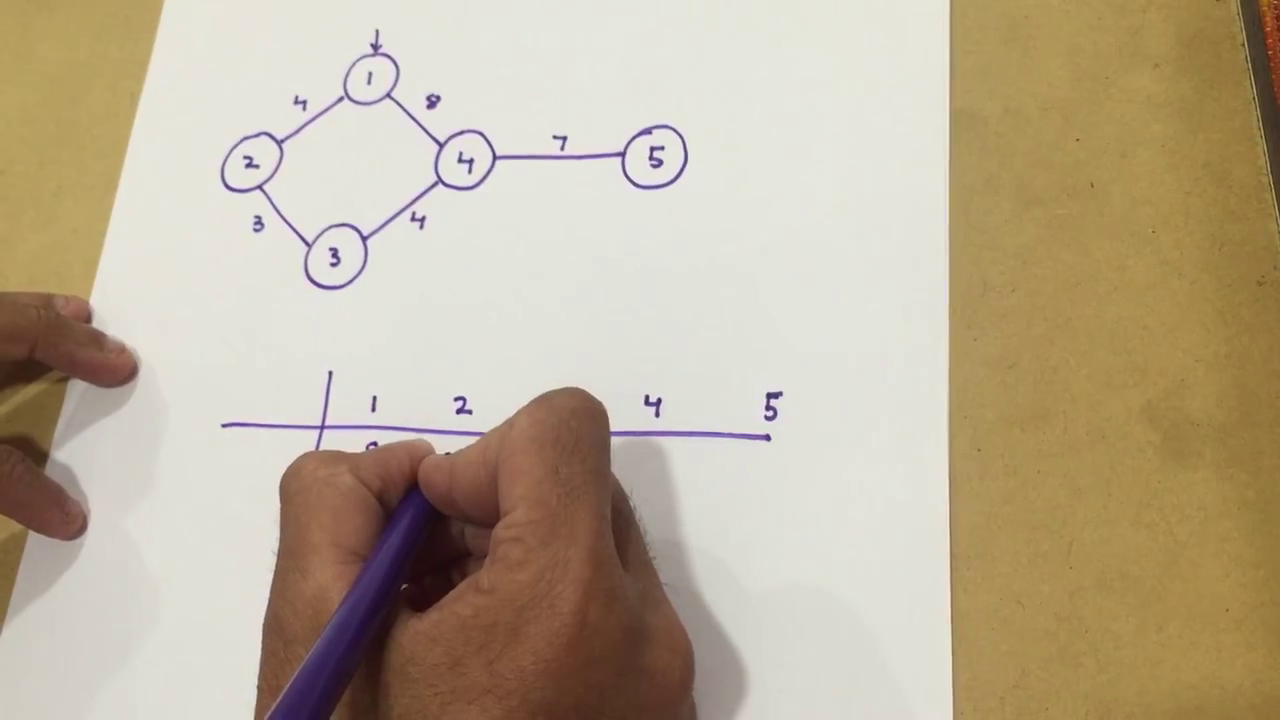 1
4 8
2 4 7 5
3 4
3
1 2 4 5